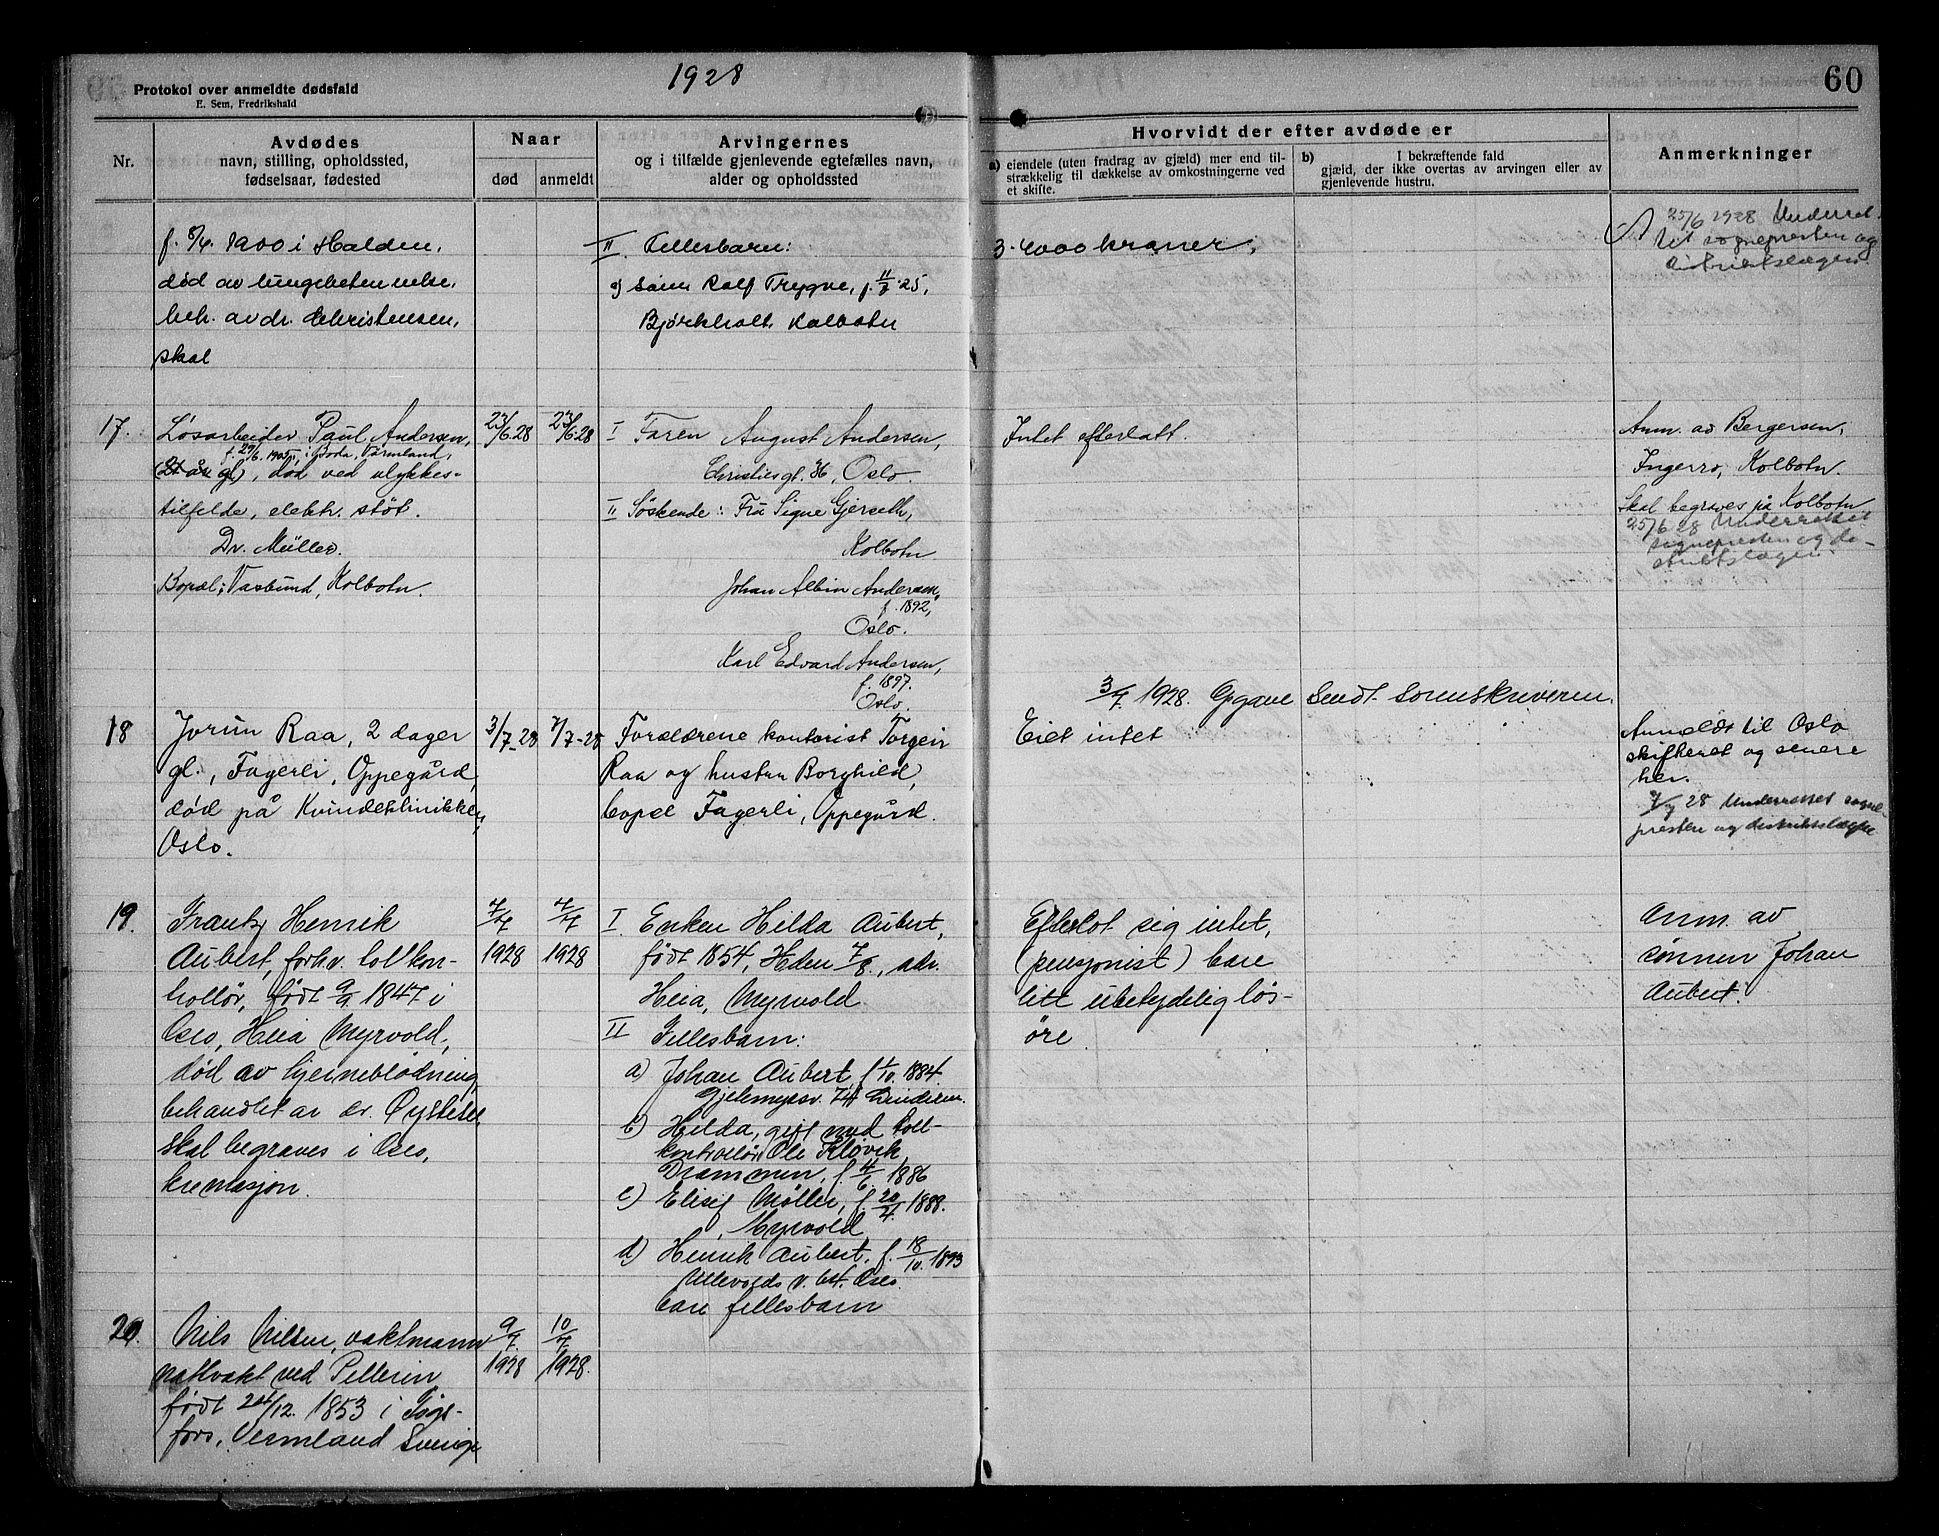 1928
60
Protokol over anmeldte dødsfald
E. Sem, Fredrikshald
Nr.
Avdødes
navn, stilling, opholdssted,
fødselsaar, fødested
Naar
død
anmeldt
Arvingernes
og i tilfælde gjenlevende egtefælles navn,
alder og opholdssted
Hvorvidt der efter avdøde er
a) eiendele (uten fradrag av gjæld) mer end til-
strækkelig til dækkelse av omkostningerne ved
et skifte.
b) I bekræftende fald
gjæld, der ikke overtas av arvingen eller av
gjenlevende hustru.
Anmerkninger
1900 i Halden,
død av lungebetennelse,
beh. av dr. Christensen,
skal
II Fellesbarn:
a) Sønn Rolf Trygve, f. 25,
Bjørkholt Kolbotn
3-4000 kroner,
25/6 1928 Underret.
til sognepresten og
distriktslægen.
17.
Løsarbeider Paul Andersen,
f. 29/6 1905, i Boda, Värmland,
død ved ulykkes-
tilfelde, elektr. støt.
Dr. Müller.
Bopæl: Vasbund, Kolbotn.
23/6.28
23/6.28
I Faren August Andersen,
Christiesgt. 36, Oslo.
II Søskende: Fru Signe Gjerseth,
Kolbotn
Johan Albin Andersen,
f. 1892,
Oslo.
Karl Edvard Andersen,
f. 1897.
Oslo.
Intet efterlatt.
Anm. av Bergersen,
Ingerro, Kolbotn.
Skal begraves på Kolbotn
25/6 28 Underrettet
sognepresten og di-
striktslægen.
3/7 1928. Opgave sendt sorenskriveren.
18
Jorun Raa, 2 dager
gl., Fagerli, Oppegård,
død på Kvindeklinikken,
Oslo.
3/7-28
7/7-28
Forældrene kontorist Torgeir
Raa og hustru Borghild,
bopel Fagerli, Oppegård.
Eiet intet
Anmeldt til Oslo
skifteret og senere
her.
28 Underrettet sogne-
presten og distriktslægen
19.
Frantz Henrik
Aubert, forhv. tollkon-
trollør, født 9/9 1847 i
Oslo, Heia Myrvold,
død av hjerneblødning,
behandlet av dr. Øystese,
skal begraves i Oslo,
kremasjon.
7/7
1928
7/7
1928
I. Enken Hilda Aubert,
født 1854, Hden 7/8., adr.
Heia, Myrvold
II Fellesbarn:
a) Johan Aubert, f. 1/10. 1884.
Gjelemyrsv. 74 Vinderen.
b) Hilda, gift med toll-
kontrollør Ole Kløvik,
Drammen, f. 4/6. 1886
c) Elisif Møller, f. 20/4. 1888.
Myrvold
d) Henrik Aubert, f. 18/10. 1893
Ullevolds v. Oslo.
bare fellesbarn
Efterlot sig intet,
(pensjonist) bare
litt ubetydelig løs-
øre
Anm. av
sønnen Johan
Aubert.
20.
Nils Nilsen, vaktmann
nattvakt ved Pellerin
født 24/12. 1853 i
fors, Vermland Sverige
9/7.
1928
10/7
1928.